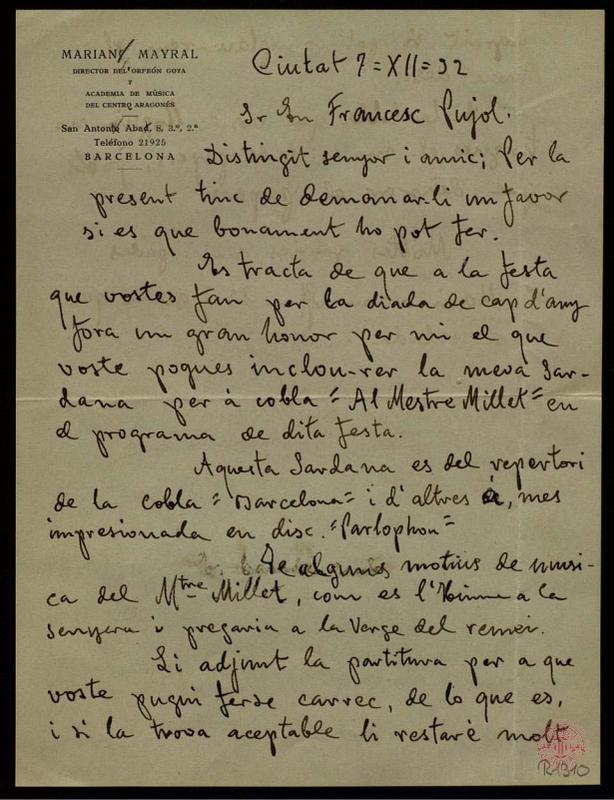 MARIANO MAYRAL
DIRECTOR DEL ORFEÓN GOYA
Y
ACADEMIA DE MÚSICA
DEL CENTRO ARAGONÉS
San Antonio Abad, 8, 3.º, 2.ª
Teléfono 21925
BARCELONA
Ciutat 7=XII=32
Sr En Francesc Pujol.
Distingit senyor i amic; Per la
present tinc de demanar-li un favor
si es que bonament ho pot fer.
Es tracta de que a la festa
que vostes fan per la diada de cap d'any
fora un gran honor per mi el que
voste pogues inclou-rer la meva Sar-
dana per à cobla "Al Mestre Millet" en
el programa de dita festa.
Aquesta Sardana es del repertori
de la cobla "Barcelona" i d'altres, mes
impresionada en disc. "Parlophon"
De algunes motius de musi-
ca del Mtre Millet, com es l'Himne a la
senyera i pregaria a la Verge del remei.
Li adjunt la partitura per a que
voste pugui ferse carrec, de lo que es,
i si la trova aceptable li restaré molt
R1310